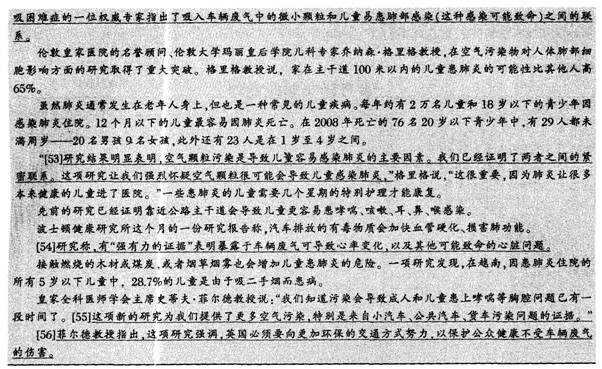 吸困难症的一位权威专家指出了吸入车辆废气中的微小颗粒和儿童易患肺部感染(这种感染可能致命)之间的联
系。
伦敦皇家医院的名誉顾问、伦敦大学玛丽皇后学院儿科专家乔纳森·格里格教授,在空气污染物对人体肺部细
胞影响方面的研究取得了重大突破。格里格教授说,家在主干道100米以内的儿童患肺炎的可能性比其他人高
65%。
虽然肺炎通常发生在老年人身上,但也是一种常见的儿童疾病。每年约有2万名儿童和18岁以下的青少年因
感染肺炎住院。12个月以下的儿童最容易因肺炎死亡。在2008年死亡的76名20岁以下青少年中,有29人都未
满周岁——20名男孩9名女孩,此外还有23人是在1岁至4岁之间。
"[53]研究结果明显表明,空气颗粒污染是导致儿童容易感染肺炎的主要因素。我们已经证明了两者之间的紧
密联系。这项研究让我们强烈怀疑空气颗粒很可能会导致儿童感染肺炎,"格里格说,"这很重要,因为肺炎让很多
本来健康的儿童进了医院。"一些患肺炎的儿童需要几个星期的特别护理才能康复。
先前的研究已经证明靠近公路主干道会导致儿童更容易患哮喘、咳嗽、耳、鼻、喉感染。
波士顿健康研究所这个月的一份研究报告称,汽车排放的有毒物质会加快血管硬化、损害肺功能。
[54]研究称,有"强有力的证据"表明暴露于车辆废气可导致心率变化,以及其他可能致命的心脏问题。
接触燃烧的木材或煤炭、或者烟草烟雾也会增加儿童患肺炎的危险。一项研究发现,在越南,因患肺炎住院的
所有5岁以下儿童中,28.7%的儿童是由于吸二手烟而患病。
皇家全科医师学会主席史蒂夫·菲尔德教授说:"我们知道污染会导致成人和儿童患上哮喘等胸腔问题已有一
段时间了。[55]这项新的研究为我们提供了更多空气污染,特别是来自小汽车、公共汽车、货车污染问题的证据。"
[56]菲尔德教授指出,这项研究强调,英国必须要向更加环保的交通方式努力,以保护公众健康不受车辆废气
的伤害。